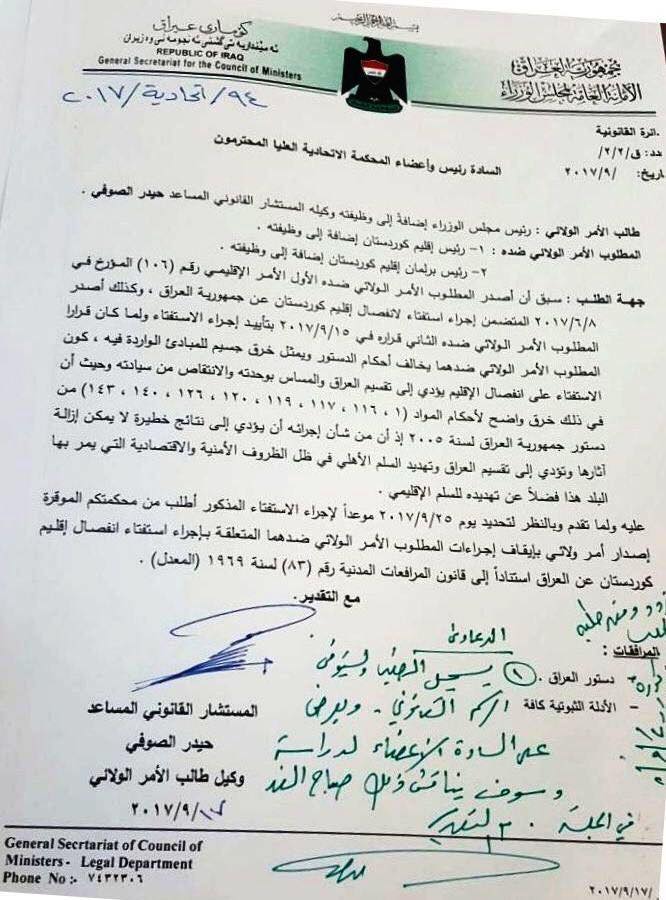 كۆماری عێراق
REPUBLIC OF IRAQ
General Secretariat for the Council of Ministers
جمهورية العراق
الأمانة العامة لمجلس الوزراء
٩٤/اتحادية/٢٠١٧
دائرة القانونية
عدد: ق/٢/٢/
تاريخ: /٢٠١٧/٩
السادة رئيس وأعضاء المحكمة الاتحادية العليا المحترمون
طالب الأمر الولائي : رئيس مجلس الوزراء إضافةً إلى وظيفته وكيله المستشار القانوني المساعد حيدر الصوفي .
المطلوب الأمر الولائي ضده : ١- رئيس إقليم كوردستان إضافة إلى وظيفته .
٢- رئيس برلمان إقليم كوردستان إضافة إلى وظيفته .
جهة الطلب : سبق أن أصدر المطلوب الأمر الولائي ضده الأول الأمر الإقليمي رقم (١٠٦) المؤرخ في
٢٠١٧/٦/٨ المتضمن إجراء استفتاء لانفصال إقليم كوردستان عن جمهورية العراق ، وكذلك أصدر
المطلوب الأمر الولائي ضده الثاني قراره في ٢٠١٧/٩/١٥ بتأييد إجراء الاستفتاء ولما كان قرارا
المطلوب الأمر الولائي ضدهما يخالف أحكام الدستور ويمثل خرق جسيم للمبادئ الواردة فيه ، كون
الاستفتاء على انفصال الإقليم يؤدي إلى تقسيم العراق والمساس بوحدته والانتقاص من سيادته وحيث أن
في ذلك خرق واضح لأحكام المواد (١ ، ١١٦ ، ١١٧ ، ١١٩ ، ١٢٠ ، ١٢٦ ، ١٤٠ ، ١٤٣) من
دستور جمهورية العراق لسنة ٢٠٠٥ إذ أن من شأن إجرائه أن يؤدي إلى نتائج خطيرة لا يمكن إزالة
آثارها وتؤدي إلى تقسيم العراق وتهديد السلم الأهلي في ظل الظروف الأمنية والاقتصادية التي يمر بها
البلد هذا فضلاً عن تهديده للسلم الإقليمي .
عليه ولما تقدم وبالنظر لتحديد يوم ٢٠١٧/٩/٢٥ موعداً لإجراء الاستفتاء المذكور أطلب من محكمتكم الموقرة
إصدار أمر ولائي بإيقاف إجراءات المطلوب الأمر الولائي ضدهما المتعلقة بإجراء استفتاء انفصال إقليم
كوردستان عن العراق استناداً إلى قانون المرافعات المدنية رقم (٨٣) لسنة ١٩٦٩ (المعدل) .
مع التقدير.
المرافقات :
- دستور العراق .
- الأدلة الثبوتية كافة
الدعاوى
١ يسجل الطلب ويستوفى
الرسم القانوني . ويعرض
على السادة الاعضاء لدراسة
وسوف يناقش ذلك صباح الغد
في الجلسة
المستشار القانوني المساعد
حيدر الصوفي
وكيل طالب الأمر الولائي
٢٠١٧/٩/١٧
General Secrtariat of Council of
Ministers- Legal Department
Phone No :- ٧٤٣٢٣٠٦
٢٠١٧/٩/١٧